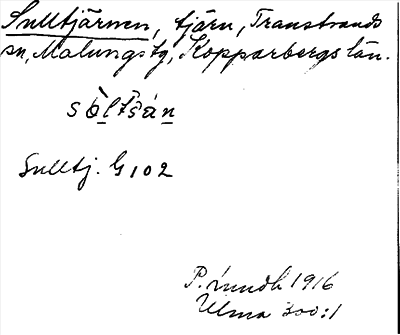 Sulltjärnen, tjärn, Transtrands
sn, Malungs tg, Kopparbergs län.
Sulltj. G 102
1916
Ulma 300:1